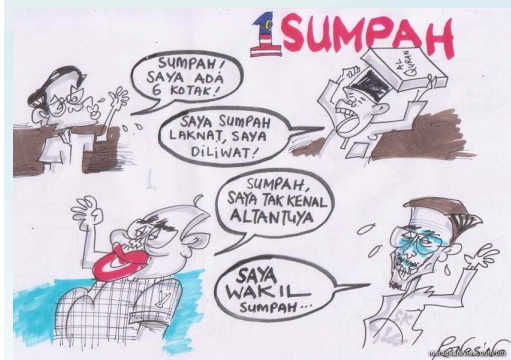 1SUMPAH
SUMPAH!
SAYA ADA
6 KOTAK!
AL
QURAN
SAYA SUMPAH
LAKNAT, SAYA
DILIWAT!
SUMPAH,
SAYA TAK KENAL
ALTANTUYA
SAYA
WAKIL
SUMPAH...